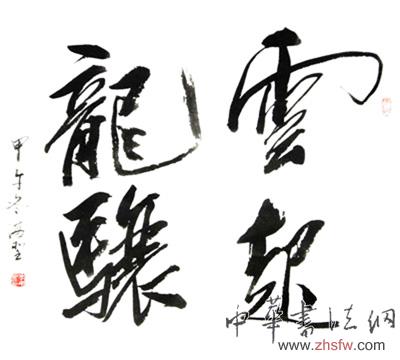 雲起
龍驤
甲午
中華書法網
www.zhsfw.com